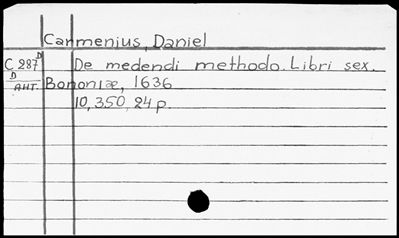 Carmenius, Daniel
C 287 D De medendi methodo. Libri sex.
D AHT. Bononiæ, 1636
10, 350, 24 p.